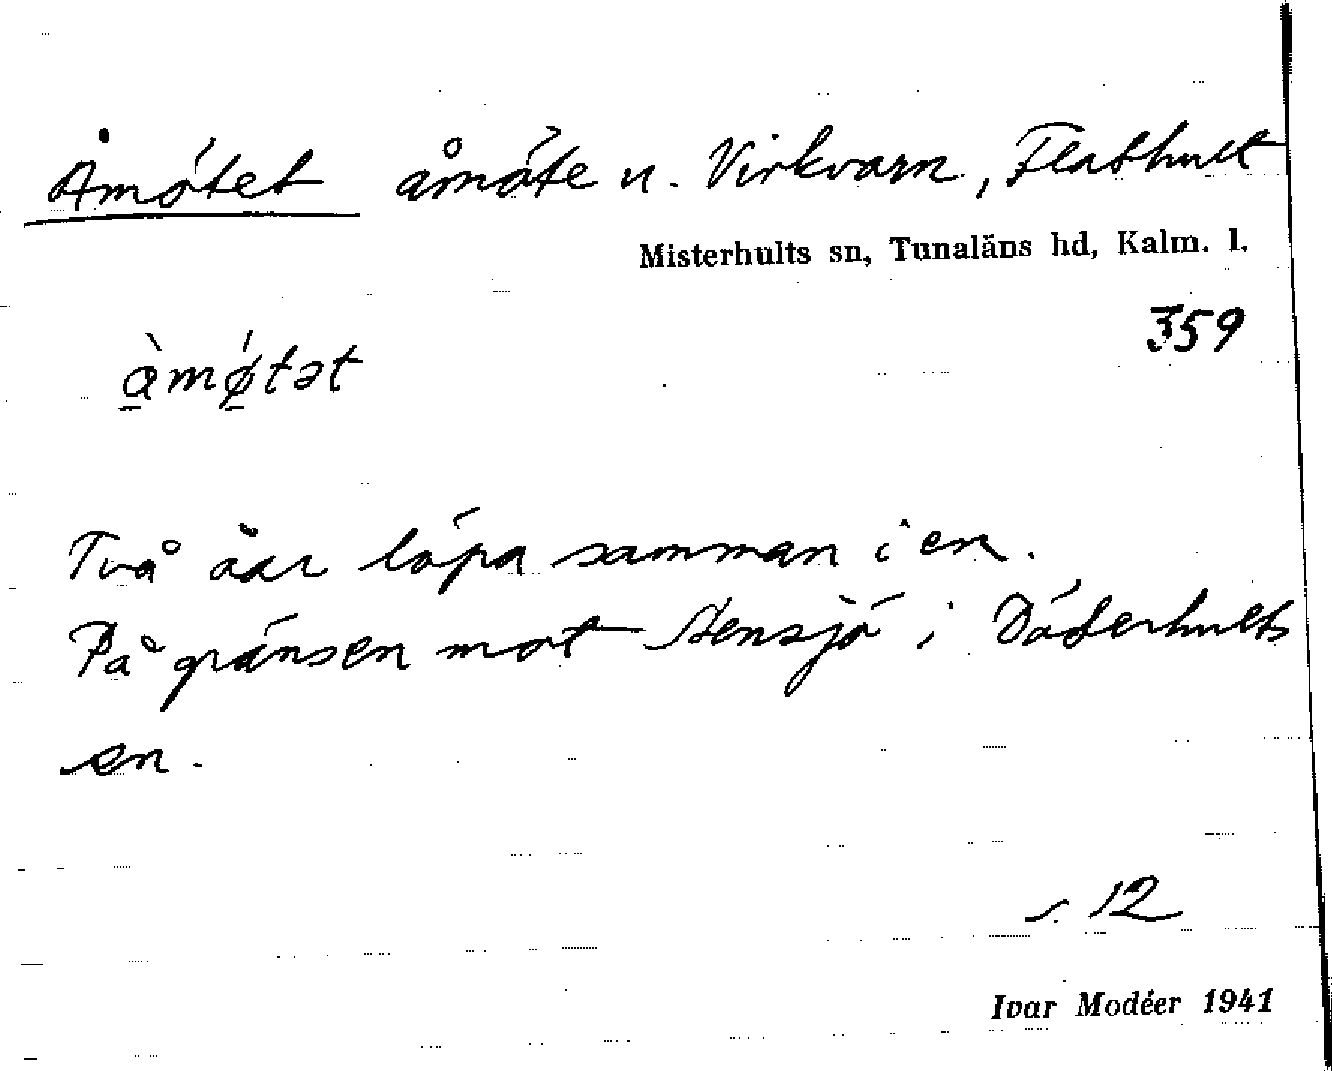 Åmötet åmöte n. Virkvarn, Flathult
Misterhults sn, Tunaläns hd, Kalm. l.
359
å̀mø̀tət
Två åar löpa samman i en.
På gränsen mot Stensjö i Döderhults
sn.
s. 12
Ivar Modéer 1941